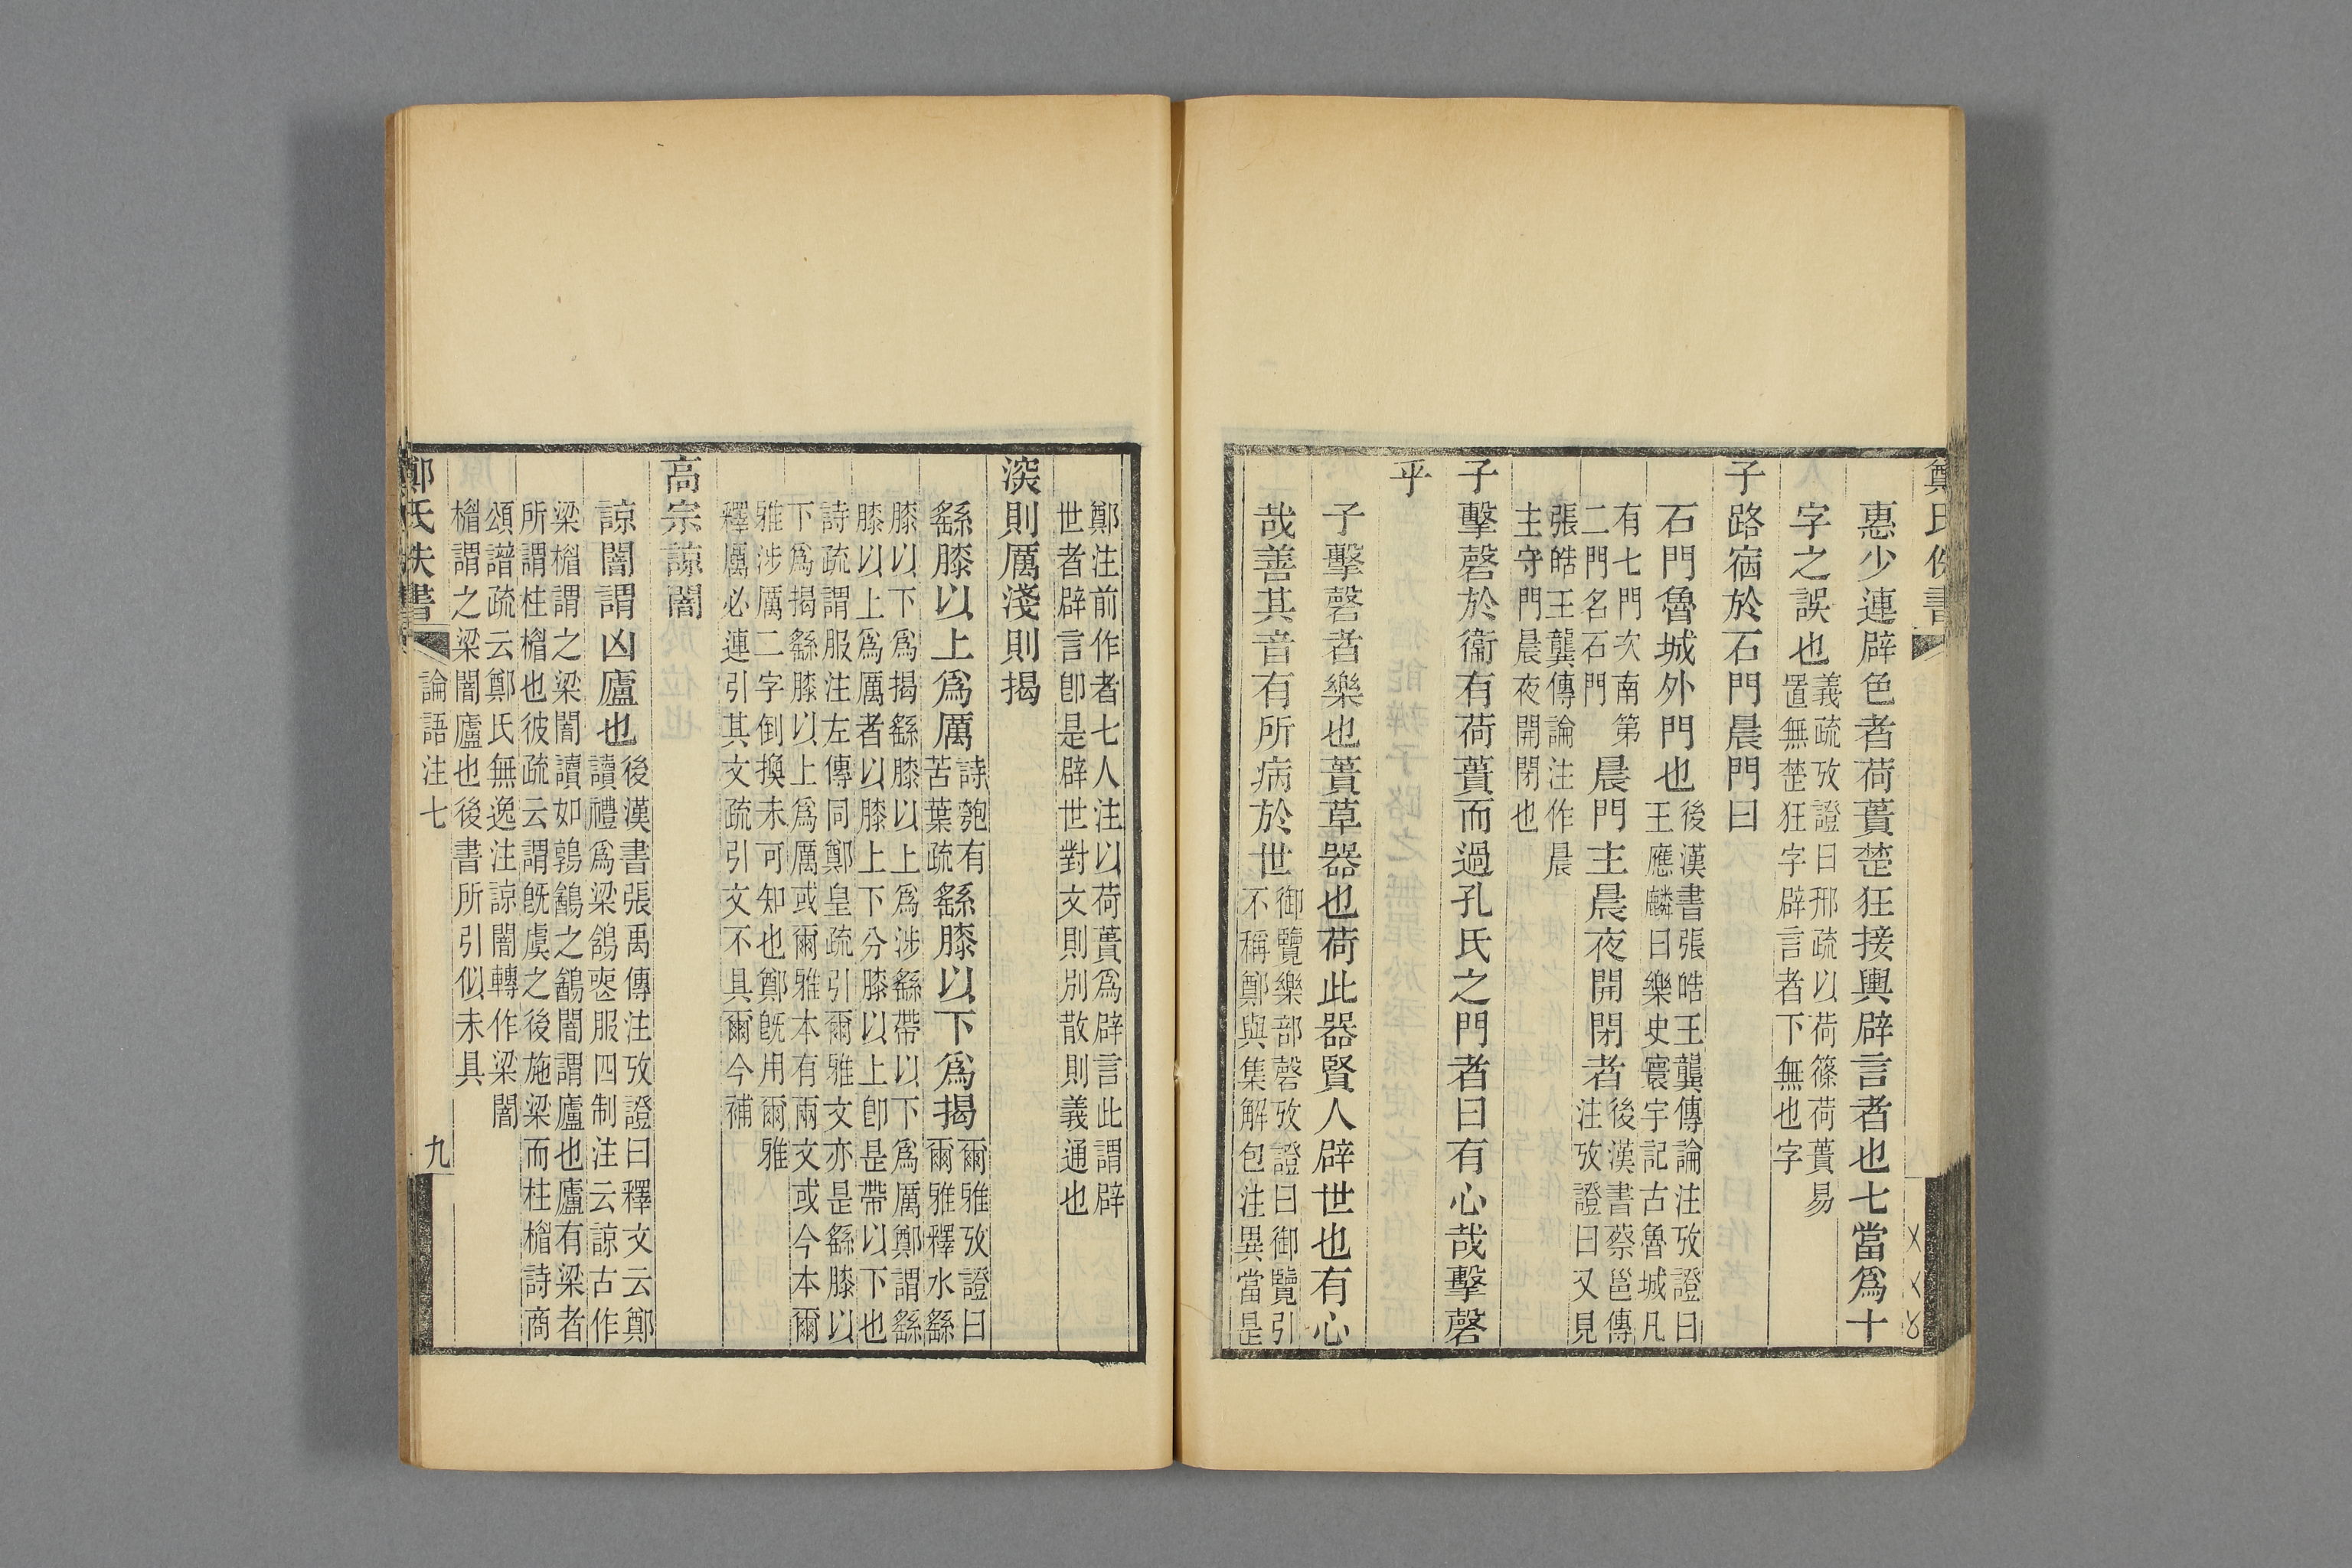 鄭氏佚書
惠少連辟色者荷蕢楚狂接輿辟言者也七當爲十
字之誤也義疏攷證曰邢疏以荷篠荷蕢易
置無楚狂字辟言者下無也字
子路宿於石門晨門曰
石門魯城外門也後漢書張皓王龔傳論注攷證曰
王應麟曰樂史寰宇記古魯城凡
有七門次南第
二門名石門晨門主晨夜開閉者後漢書蔡邕傳
注攷證曰又見
張皓王龔傳論注作晨
主守門晨夜開閉也
子擊磬於衞有荷蕢而過孔氏之門者曰有心哉擊磬
乎
子擊磬者樂也蕢草器也荷此器賢人辟世也有心
哉善其音有所病於世御覽樂部磬攷證曰御覽引
不稱鄭與集解包注異當是
鄭注前作者七人注以荷蕢爲辟言此謂辟
世者辟言卽是辟世對文則別散則義通也
深則厲淺則揭
繇膝以上爲厲詩匏有
苦葉疏繇膝以下爲揭爾雅攷證曰
爾雅釋水繇
膝以下爲揭繇膝以上爲涉繇帶以下爲厲鄭謂繇
膝以上爲厲者以膝上下分膝以上卽是帶以下也
詩疏謂服注左傳同鄭皇疏引爾雅文亦是繇膝以
下爲揭繇膝以上爲厲或爾雅本有兩文或今本爾
雅涉厲二字倒換未可知也鄭旣用爾雅
釋厲必連引其文疏引文不具爾今補
高宗諒闇
諒闇謂凶廬也後漢書張禹傳注攷證曰釋文云鄭
讀禮爲梁鵮喪服四制注云諒古作
梁楣謂之梁闇讀如鶉鷂之鷂闇謂廬也廬有梁者
所謂柱楣也彼疏云謂旣虞之後施梁而柱楣詩商
頌譜疏云鄭氏無逸注諒闇轉作梁闇
楣謂之梁闇廬也後書所引似未具
鄭氏佚書
論語注七
九